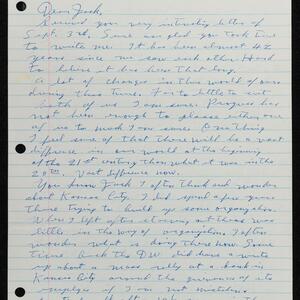 Dear Jack,
Received your very interesting letter of
Sept. 3rd, Sure am glad you took time
to write me. It has been almost 42
years since we saw each other Hard
to believe it has been that long.
A lot of change in this world of ours
during this time. Far to little to suit
both of us I am sure. Progress has
not been enough to please either one
of us to much I am sure. One thing
I feel sure of that there will be a vast
difference in our world at the beginning
of the 21st century than what it was in the
20th. Vast difference now.
You know Jack I often think and wonder
about Kansas City. I had spent a few years
there trying to build up some organization.
When I left after all the was
little in the way of organization. I often
wonder what is doing there now. Some
time back the DW did have a write
up about a mass rally at a bank in
Kansas City around the grievance of its
employes if I am not mistaken.